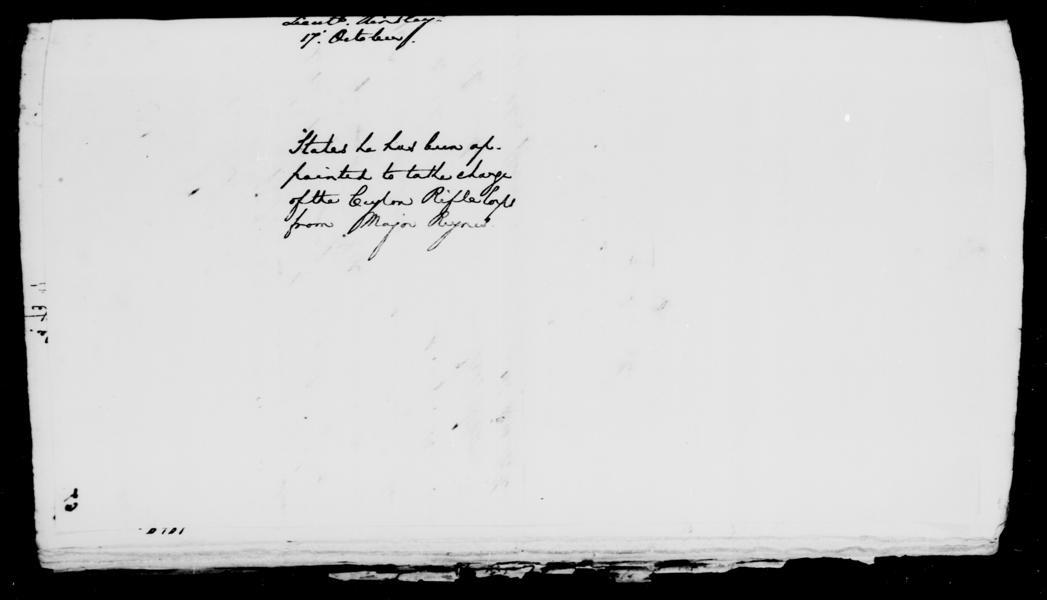 Lieut.
17. October.
States he has been ap-
pointed to take charge
of the Ceylon Rifle Corps
from Major Rayner